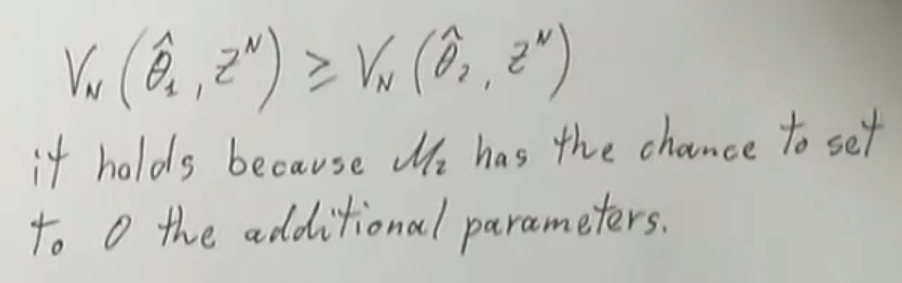 V_N (θ̂_1, Z^N) ≥ V_N (θ̂_2, Z^N)
it holds because M_2 has the chance to set
to 0 the additional parameters.